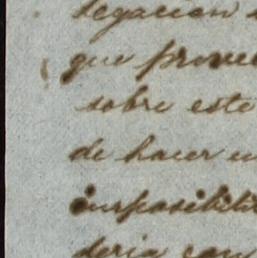 legacion
que prove
sobre este
de hacer u
imposibilit
deria con